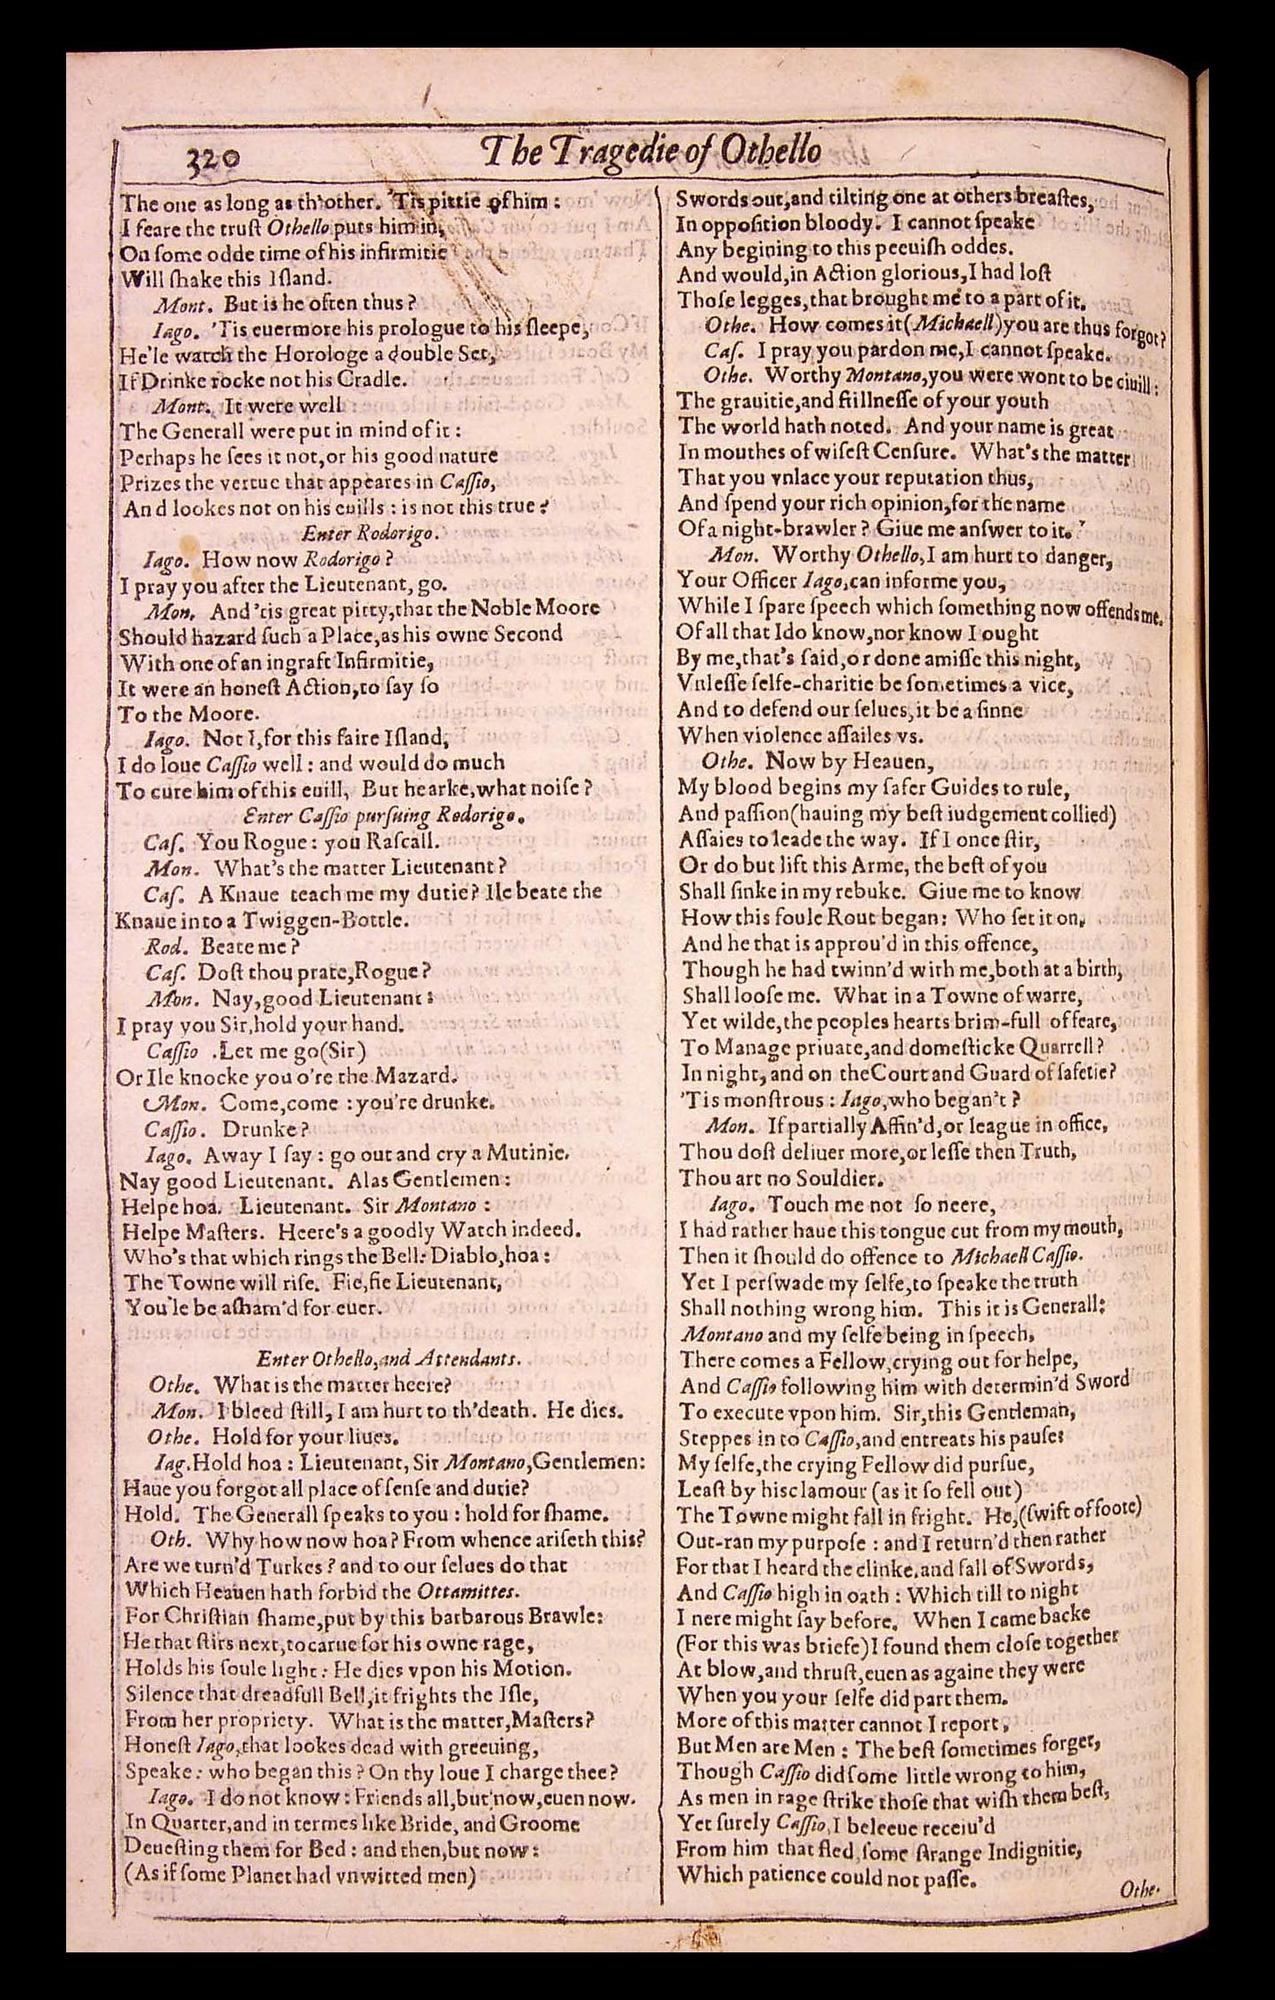 320
The Tragedie of Othello
The one as long as th'other. 'Tis pittie of him :
I feare the trust Othello puts him in,
On some odde time of his infirmitie
Will shake this Island.
Mont. But is he often thus ?
Iago. 'Tis euermore his prologue to his sleepe,
He'le watch the Horologe a double Set,
If Drinke rocke not his Cradle.
Mont. It were well
The Generall were put in mind of it :
Perhaps he sees it not, or his good nature
Prizes the vertue that appeares in Cassio,
And lookes not on his euills : is not this true ?
Enter Rodorigo.
Iago. How now Rodorigo ?
I pray you after the Lieutenant, go.
Mon. And 'tis great pitty, that the Noble Moore
Should hazard such a Place, as his owne Second
With one of an ingraft Infirmitie,
It were an honest Action, to say so
To the Moore.
Iago. Not I, for this faire Island,
I do loue Cassio well : and would do much
To cure him of this euill, But hearke, what noise ?
Enter Cassio pursuing Rodorigo.
Cas. You Rogue : you Rascall.
Mon. What's the matter Lieutenant ?
Cas. A Knaue teach me my dutie ? Ile beate the
Knaue into a Twiggen-Bottle.
Rod. Beate me ?
Cas. Dost thou prate, Rogue ?
Mon. Nay, good Lieutenant :
I pray you Sir, hold your hand.
Cassio .Let me go(Sir)
Or Ile knocke you o're the Mazard.
Mon. Come, come : you're drunke.
Cassio. Drunke ?
Iago. Away I say : go out and cry a Mutinie.
Nay good Lieutenant. Alas Gentlemen :
Helpe hoa. Lieutenant. Sir Montano :
Helpe Masters. Heere's a goodly Watch indeed.
Who's that which rings the Bell: Diablo, hoa :
The Towne will rise. Fie, fie Lieutenant,
You'le be asham'd for euer.
Enter Othello, and Attendants.
Othe. What is the matter heere?
Mon. I bleed still, I am hurt to th'death. He dies.
Othe. Hold for your liues.
Iag. Hold hoa : Lieutenant, Sir Montano, Gentlemen:
Haue you forgot all place of sense and dutie?
Hold. The Generall speaks to you : hold for shame.
Oth. Why how now hoa? From whence ariseth this?
Are we turn'd Turkes ? and to our selues do that
Which Heauen hath forbid the Ottamittes.
For Christian shame, put by this barbarous Brawle:
He that stirs next, to carue for his owne rage,
Holds his soule light: He dies vpon his Motion.
Silence that dreadfull Bell, it frights the Isle,
From her propriety. What is the matter, Masters?
Honest Iago, that lookes dead with greeuing,
Speake: who began this ? On thy loue I charge thee?
Iago. I do not know: Friends all, but now, euen now.
In Quarter, and in termes like Bride, and Groome
Deuesting them for Bed : and then, but now :
(As if some Planet had vnwitted men)
Swords out, and tilting one at others breastes,
In opposition bloody. I cannot speake
Any begining to this peeuish oddes.
And would, in Action glorious, I had lost
Those legges, that brought me to a part of it.
Othe. How comes it (Michaell) you are thus forgot?
Cas. I pray you pardon me, I cannot speake.
Othe. Worthy Montano, you were wont to be ciuill :
The grauitie, and stillnesse of your youth
The world hath noted. And your name is great
In mouthes of wisest Censure. What's the matter
That you vnlace your reputation thus,
And spend your rich opinion, for the name
Of a night-brawler ? Giue me answer to it.
Mon. Worthy Othello, I am hurt to danger,
Your Officer Iago, can informe you,
While I spare speech which something now offends me.
Of all that I do know, nor know I ought
By me, that's said, or done amisse this night,
Vnlesse selfe-charitie be sometimes a vice,
And to defend our selues, it be a sinne
When violence assailes vs.
Othe. Now by Heauen,
My blood begins my safer Guides to rule,
And passion (hauing my best iudgement collied)
Assaies to leade the way. If I once stir,
Or do but lift this Arme, the best of you
Shall sinke in my rebuke. Giue me to know
How this foule Rout began: Who set it on,
And he that is approu'd in this offence,
Though he had twinn'd with me, both at a birth,
Shall loose me. What in a Towne of warre,
Yet wilde, the peoples hearts brim-full of feare,
To Manage priuate, and domesticke Quarrell ?
In night, and on the Court and Guard of safetie ?
'Tis monstrous : Iago, who began't ?
Mon. If partially Affin'd, or league in office,
Thou dost deliuer more, or lesse then Truth,
Thou art no Souldier.
Iago. Touch me not so neere,
I had rather haue this tongue cut from my mouth,
Then it should do offence to Michaell Cassio.
Yet I perswade my selfe, to speake the truth
Shall nothing wrong him. This it is Generall:
Montano and my selfe being in speech,
There comes a Fellow, crying out for helpe,
And Cassio following him with determin'd Sword
To execute vpon him. Sir, this Gentleman,
Steppes in to Cassio, and entreats his pause:
My selfe, the crying Fellow did pursue,
Least by his clamour (as it so fell out)
The Towne might fall in fright. He, (swift of foote)
Out-ran my purpose : and I return'd then rather
For that I heard the clinke, and fall of Swords,
And Cassio high in oath : Which till to night
I nere might say before. When I came backe
(For this was briefe) I found them close together
At blow, and thrust, euen as againe they were
When you your selfe did part them.
More of this matter cannot I report,
But Men are Men : The best sometimes forget,
Though Cassio did some little wrong to him,
As men in rage strike those that wish them best,
Yet surely Cassio, I beleeue receiu'd
From him that fled, some strange Indignitie,
Which patience could not passe.
Othe.